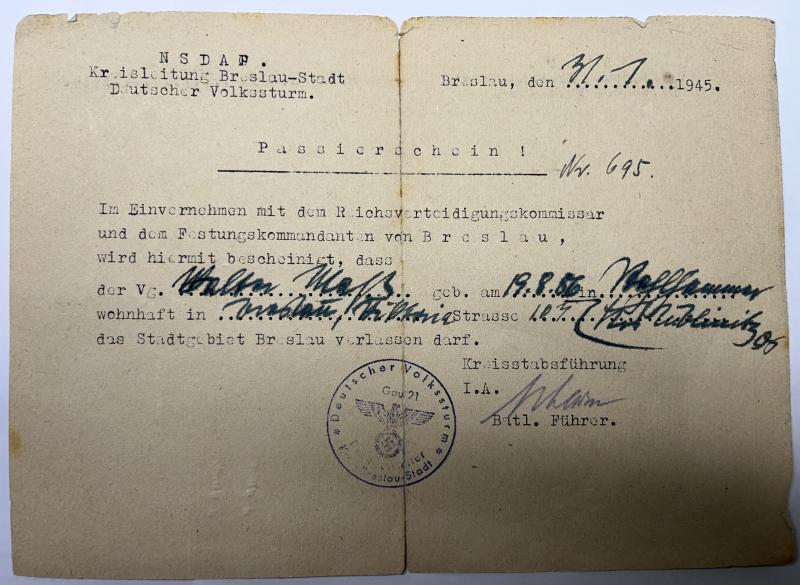 NSDAP.
Kreisleitung Breslau-Stadt
Deutscher Volkssturm.
Breslau, den 31.1. 1945.
Passierschein!
Nr. 695.
Im Einvernehmen mit dem Reichsverteidigungskommissar
und dem Festungskommandanten von Breslau,
wird hiermit bescheinigt, dass
der Vg. Walter geb. am 19.8. in
wohnhaft in Breslau, Viktoria Strasse
das Stadtgebiet Breslau verlassen darf.
Kreisstabsführung
I.A.
Batl. Führer.
* Deutscher Volkssturm *
Gau 21
Breslau-Stadt